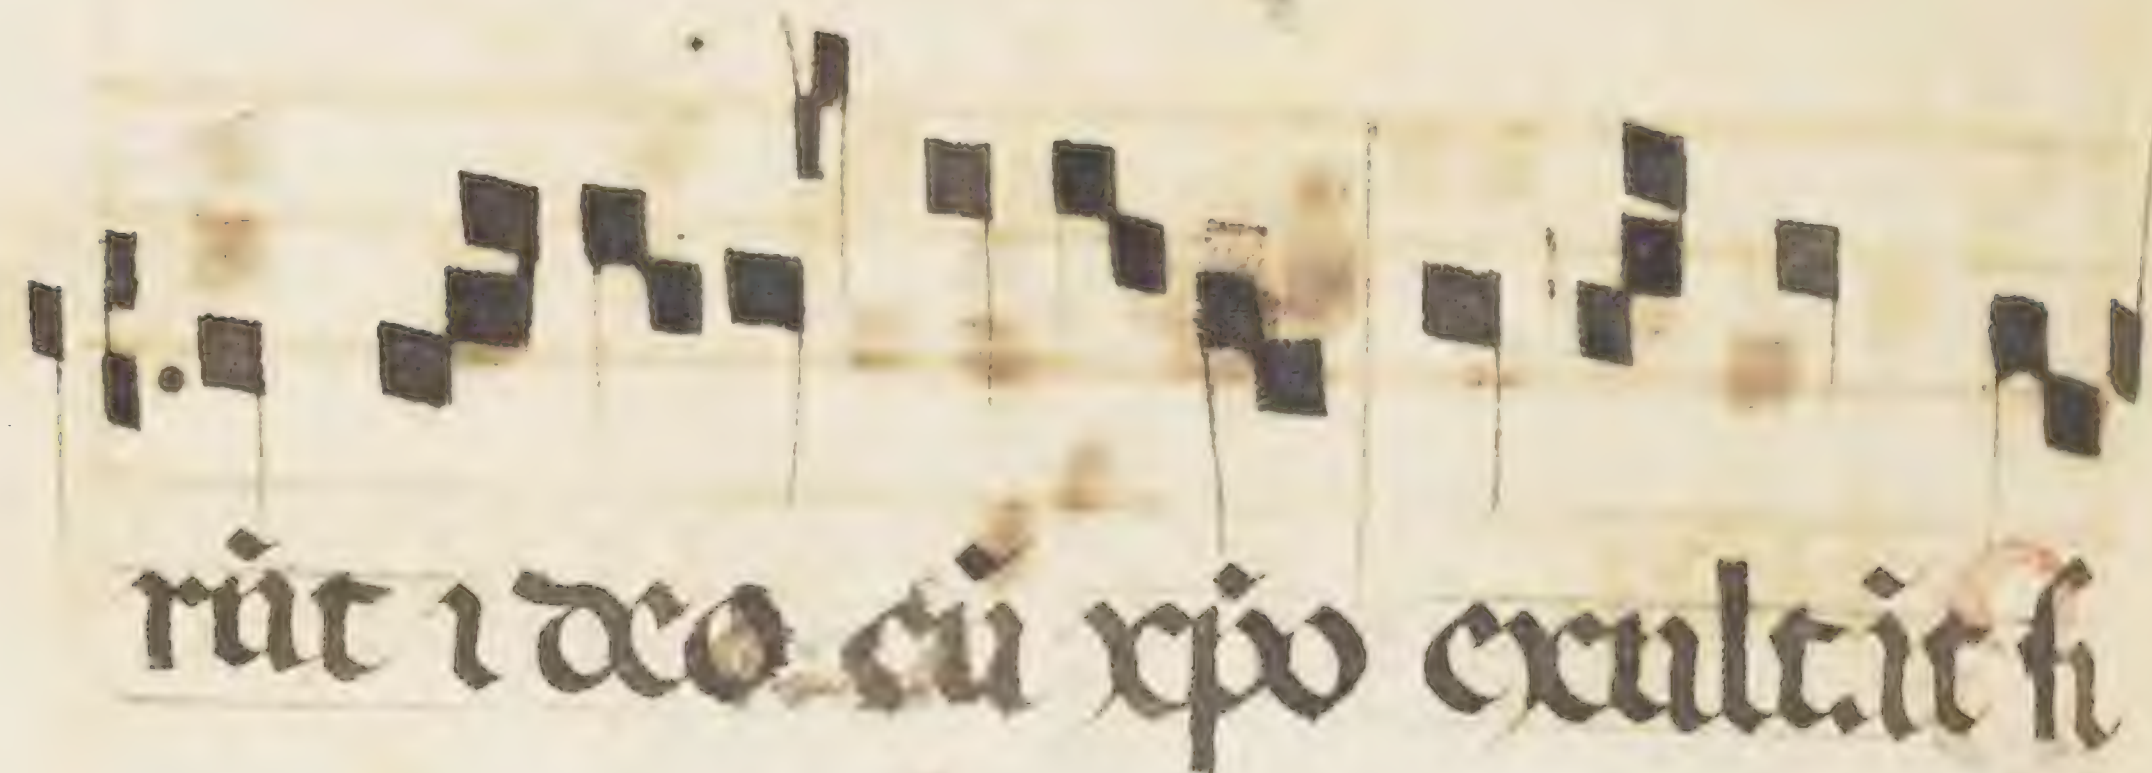 rūt ideo cū xp̄o exultāt ſi